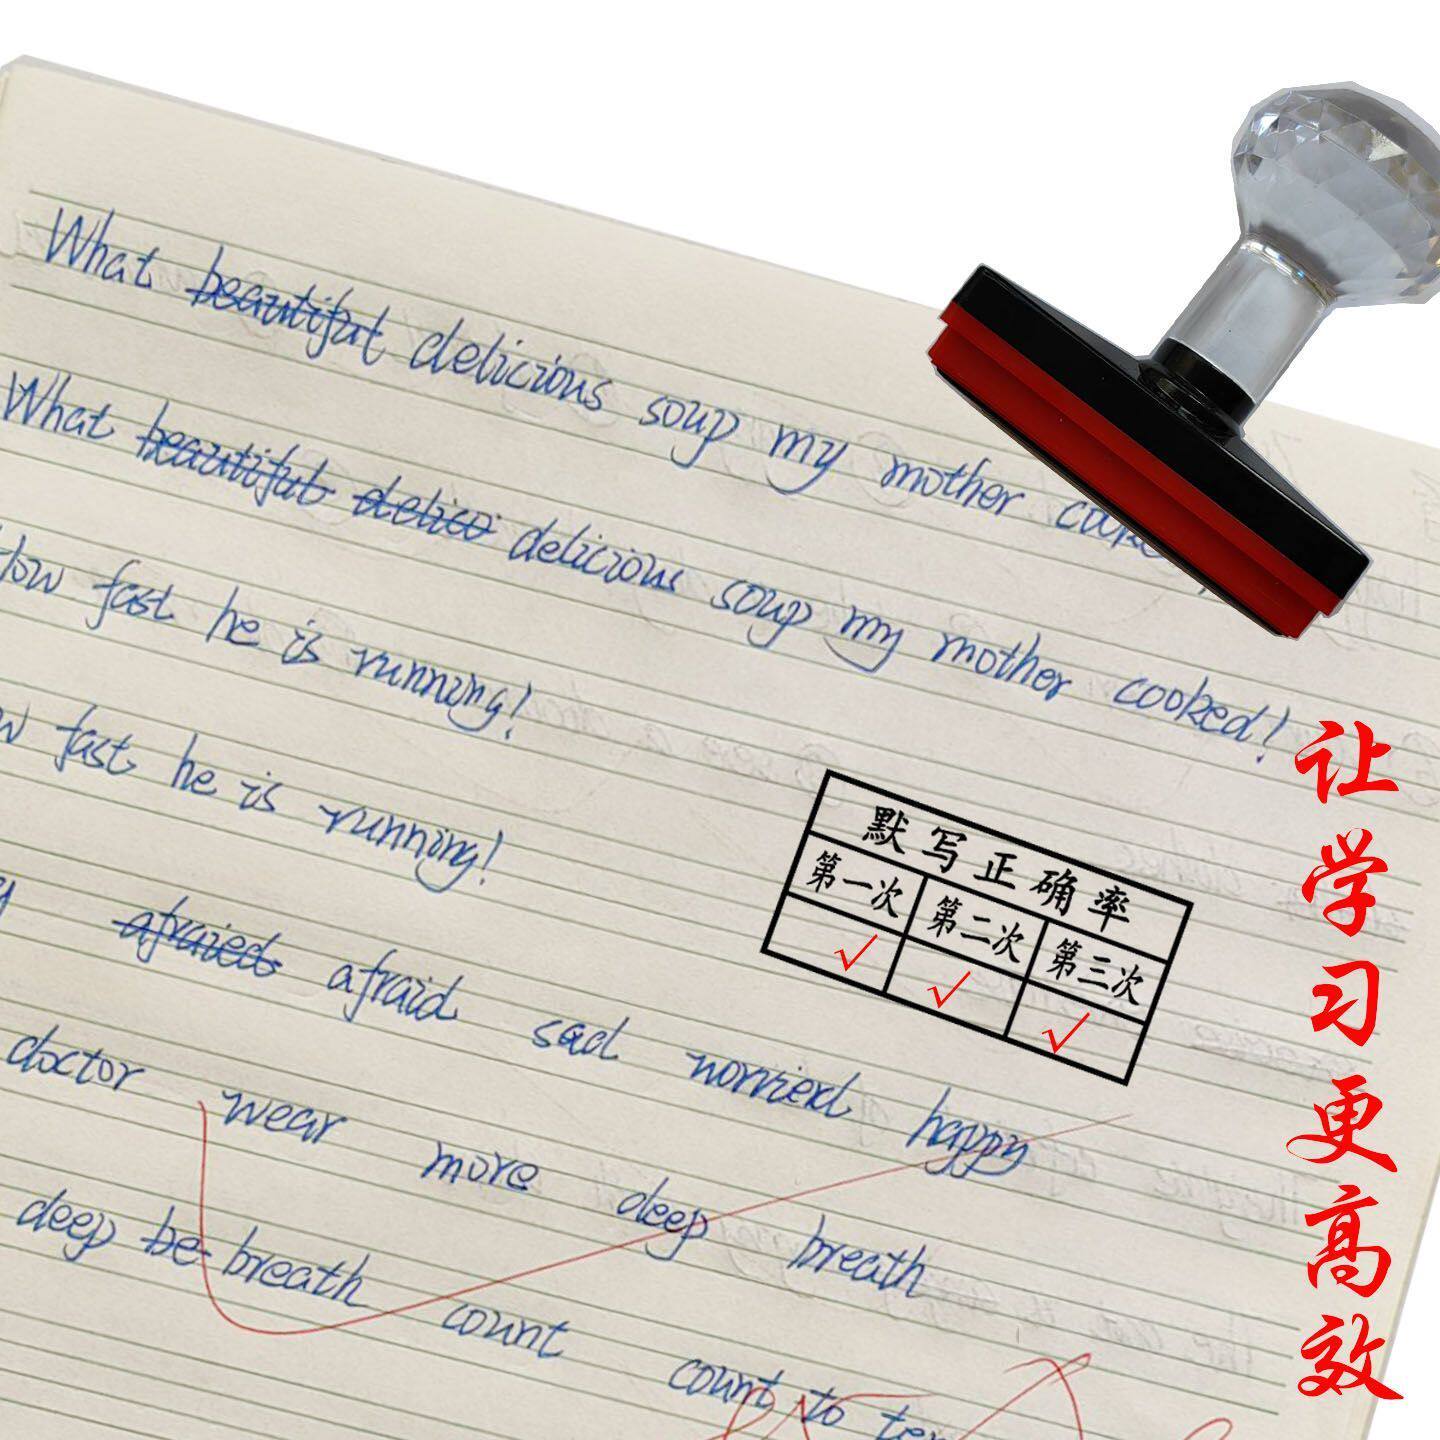 What beautiful delicious soup my mother cooke
What beautiful delico delicious soup my mother cooked!
How fast he is running!
fast he is running!
afraied afraid sad worried happy
doctor wear more deep breath
deep be breath count count to ten
默写正确率
第一次 第二次 第三次
√ √ √
让学习更高效